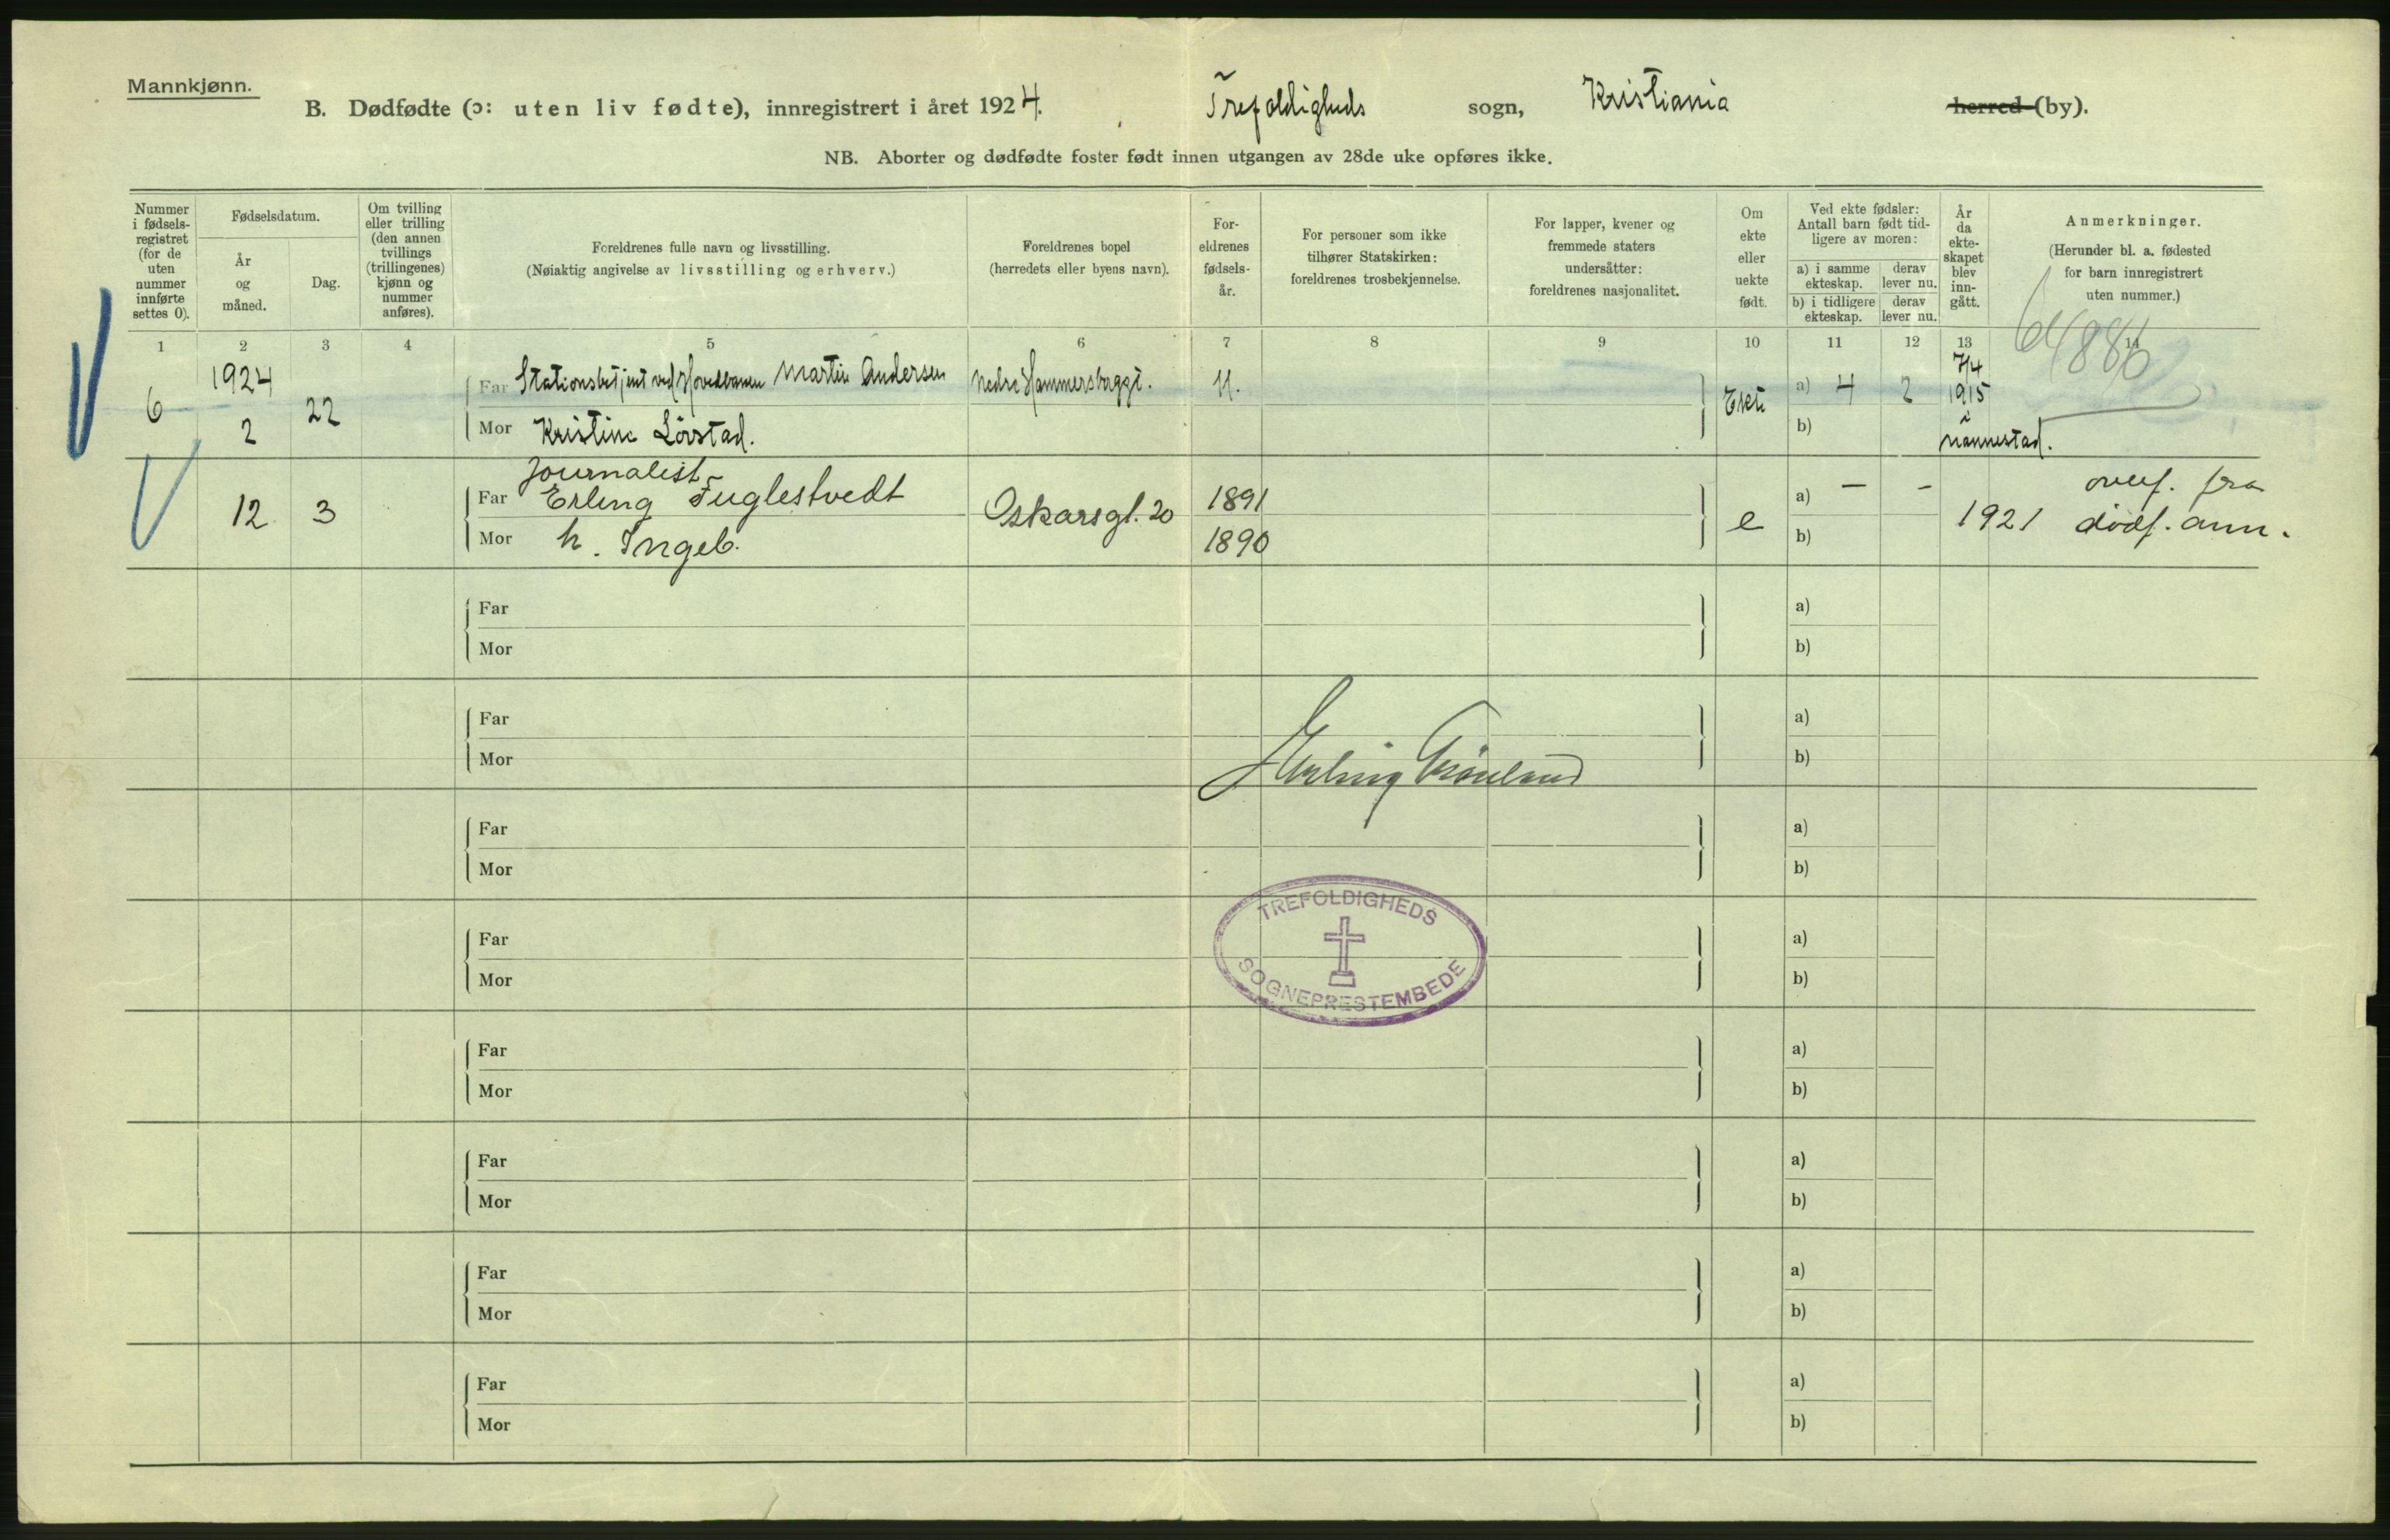 Mannkjønn.
B. Dødfødte (ɔ: uten liv fødte), innregistrert i året 1924. Trefoldigheds sogn, Kristiania herred (by).
NB. Aborter og dødfødte foster født innen utgangen av 28de uke opføres ikke.
Nummer i fødsels-registret (for de uten nummer innførte settes 0).
Fødselsdatum.
År og måned.
Dag.
Om tvilling eller trilling (den annen tvillings (trillingenes) kjønn og nummer anføres).
Foreldrenes fulle navn og livsstilling.
(Nøiaktig angivelse av livsstilling og erhverv.)
Foreldrenes bopel
(herredets eller byens navn).
For-eldrenes fødsels-år.
For personer som ikke tilhører Statskirken: foreldrenes trosbekjennelse.
For lapper, kvener og fremmede staters undersåtter: foreldrenes nasjonalitet.
Om ekte eller uekte født.
Ved ekte fødsler: Antall barn født tid-ligere av moren:
a) i samme ekteskap.
derav lever nu.
b) i tidligere ekteskap.
derav lever nu.
År da ekte-skapet blev inn-gått.
Anmerkninger.
(Herunder bl. a. fødested for barn innregistrert uten nummer.)
1 2 3 4 5 6 7 8 9 10 11 12 13 14
6 1924 2 22
Far Stationsbetjent ved Hovedbanen Martin Andersen
Mor Kristine Lörstad.
Nedre Hammersborggt. 11.
Ekte a) 4 2 b)
7/4 1915 Nannestad.
6488
12 3
Journalist
Far Erling Fuglestvedt
Mor h. Ingeb.
Oskarsgt. 20
1891
1890
e a) — - b)
1921
overf. fra
dödf. anm.
Far a)
Mor b)
Far a)
Mor b)
Erling Grønland
Far a)
Mor b)
TREFOLDIGHEDS
SOGNEPRESTEMBEDE
Far a)
Mor b)
Far a)
Mor b)
Far a)
Mor b)
Far a)
Mor b)
Far a)
Mor b)